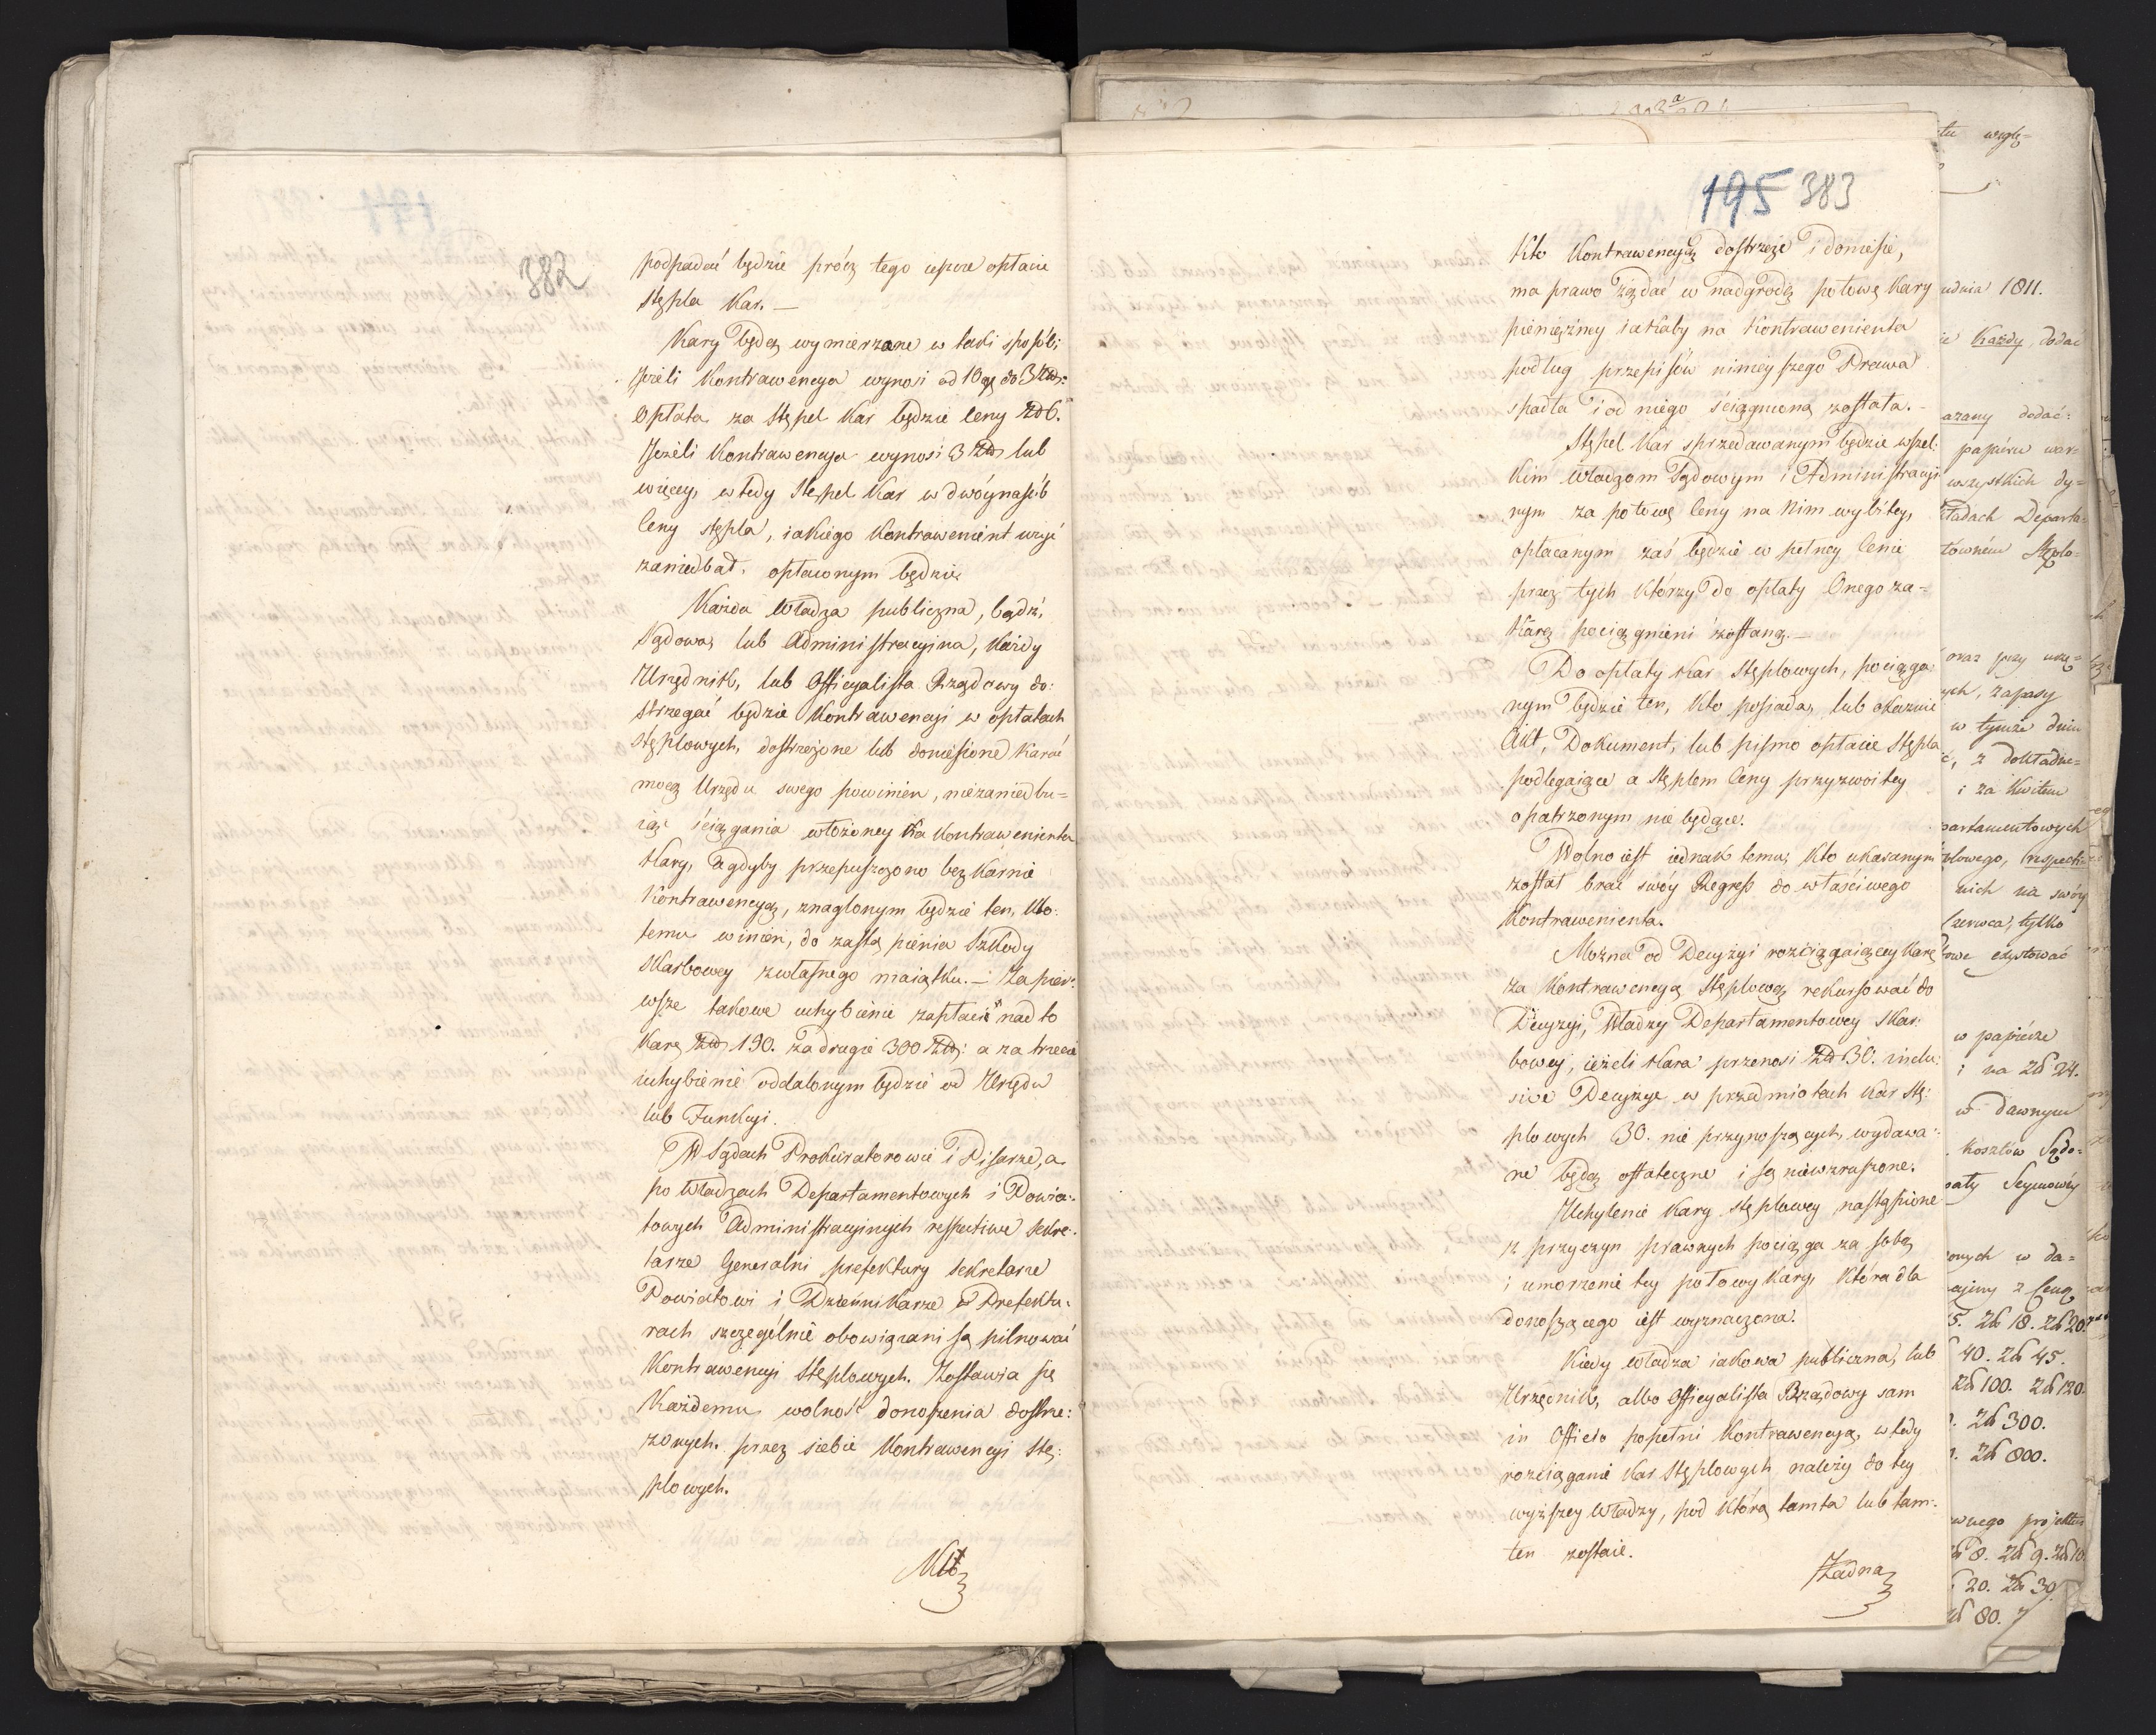 382
podpadać będzie prócz tego iescze opłacie
stępla Kar. —
Kary będą wymierzane w taki sposób:
Jeżeli Kontrawencya wynosi od 10 gr do 3 Zło:
opłata za Stępel Kar będzie Ceny Zł 6.
Jeżeli Kontrawencya wynosi 3 Zło lub
więcey, wtedy Stępel Kar w dwóynasób
Ceny stępla, iakiego Kontrawenient użyć
zaniedbał, opłaconym będzie.
Każda Władza publiczna, bądź
Sądowa, lub Administracyina, Każdy
Urzędnik, lub Officyalista Rządowy do:
strzegać będzie Kontrawencyi w opłatach
stęplowych, dostrzeżone lub doniesione karać
mocą Urzędu swego powinien, niezaniedbu=
iąc ściągania włożoney na Kontrawenienta
Kary, a gdyby przepuszczono bezkarnie
Kontrawencyą, znaglonym będzie ten, kto
temu winien, do zastąpienia Szkody
Skarbowey z własnego maiątku. — Za pier:
wsze takowe uchybienie zapłaci nadto
Karę Zło 190. za drugie 300 Zło: a za trzecie
uchybienie oddalonym będzie od Urzędu
lub Funkcyi.
W Sądach Prokuratorowie i Pisarze, a
po Władzach Departamentowych i Powia:
towych Administracyinych respective Sekre:
tarze Generalni prefektury Sekretarze
Powiatowi i Dziennikarze w Prefektu:
rach szczególnie obowiązani są pilnować
Kontrawencyi Stęplowych. Zostawia się
Każdemu wolność donoszenia dostrze:
żonych przez siebie Kontrawencyi Stę:
plowych.
Kto
195 383
Kto Kontrawencyą dostrzeże i doniesie,
ma prawo żądać w nadgrodę połowę Kary
pieniężney iakaby na Kontrawenienta
podług przepisów ninieyszego Prawa
spadła i od niego ściągnioną została. —
Stępel Kar sprzedawanym będzie wszel:
kim Władzom Sądowym i Administracyi
nym za połowę Ceny na nim wybitey,
opłacanym zaś będzie w pełney Cenie
przez tych którzy do opłaty Onego za=
Karę pociągnieni zostaną. —
Do opłaty Kar Stęplowych, pociąga
nym będzie ten, Kto posiada, lub okazuie
Akt, Dokument, lub pismo opłacie Stępla
podlegaiące a Stęplem Ceny przyzwoitey
opatrzonym nie będące.
Wolno iest iednak temu, Kto ukaranym
został brać swóy Regress do właściwego
Kontrawenienta.
Można od Decyzyi rozciągaiącey Karę
za Kontrawencyą Stęplową rekursować do
Decyzyi, Władzy Departamentowey Skar:
bowey, ieżeli Kara przenosi Zł 30. inclu:
sive Decyzye w przedmiotach Kar Stę:
plowych 30. nie przynoszących, wydawa:
ne będą ostateczne i są niewzruszone.
Uchylenie Kary stęplowey nastąpione
z przyczyn prawnych pociąga za sobą
i umorzenie tey połowy Kary, Która dla
donoszącego iest wyznaczona.
Kiedy władza iakowa publiczna, lub
Urzędnik, albo Officyalista Rządowy sam
in Officio popełni Kontrawencyą, wtedy
rozciąganie Kar Stęplowych należy do tey
wyższey Władzy, pod którą tamta lub tam:
ten zostaie.
Żadna
udnia 1811.
Każdy, dodać
dodać:
papiéru war=
wszystkich dy=
Departa=
oraz przy
zapasy
w tymże dniu
z dokładne=
i za Kwitem
partamentowych
nich na swóy
Czerwca, tylko
w papierze
i na Zł 24.
w dawnym
kosztów Sądo=
Seymowéy
onych w da=
z Ceną
5. Zł 18. Zł 20.
40. Zł 45.
Zł 100. Zł 120.
Zł 300.
Zł 800.
wnego projektu
Zł 8. Zł 9. Zł 10
20. Zł 30.
Zł 80.